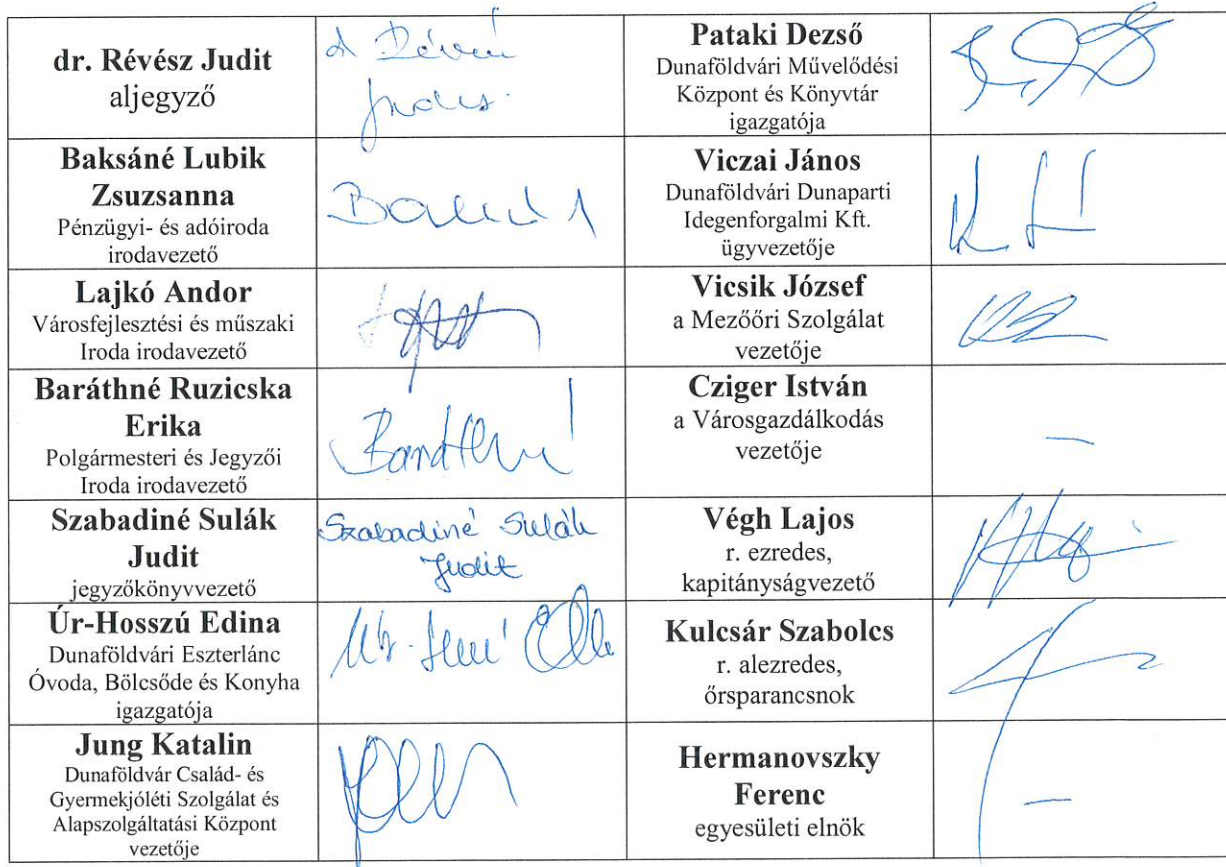 dr. Révész Judit
aljegyző
Pataki Dezső
Dunaföldvári Művelődési
Központ és Könyvtár
igazgatója
Baksáné Lubik
Zsuzsanna
Pénzügyi- és adóiroda
irodavezető
Viczai János
Dunaföldvári Dunaparti
Idegenforgalmi Kft.
ügyvezetője
Lajkó Andor
Városfejlesztési és műszaki
Iroda irodavezető
Vicsik József
a Mezőőri Szolgálat
vezetője
Baráthné Ruzicska
Erika
Polgármesteri és Jegyzői
Iroda irodavezető
Cziger István
a Városgazdálkodás
vezetője
–
Szabadiné Sulák
Judit
jegyzőkönyvvezető
Szabadiné Sulák
Judit
Végh Lajos
r. ezredes,
kapitányságvezető
Úr-Hosszú Edina
Dunaföldvári Eszterlánc
Óvoda, Bölcsőde és Konyha
igazgatója
Kulcsár Szabolcs
r. alezredes,
őrsparancsnok
Jung Katalin
Dunaföldvár Család- és
Gyermekjóléti Szolgálat és
Alapszolgáltatási Központ
vezetője
Hermanovszky
Ferenc
egyesületi elnök
–